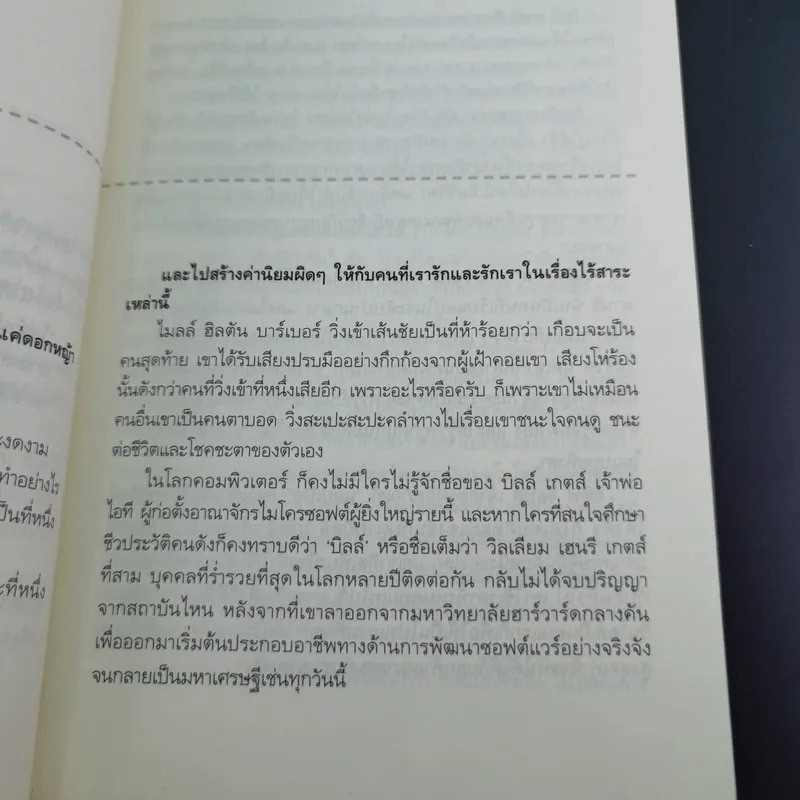 นแค่ดอกหญ้า
ะงดงาม
ทำอย่างไร
ป็นที่หนึ่ง
ะที่หนึ่ง
และไปสร้างค่านิยมผิดๆ ให้กับคนที่เรารักและรักเราในเรื่องไร้สาระ
เหล่านี้
ไมลล์ ฮิลตัน บาร์เบอร์ วิ่งเข้าเส้นชัยเป็นที่ห้าร้อยกว่า เกือบจะเป็น
คนสุดท้าย เขาได้รับเสียงปรบมืออย่างกึกก้องจากผู้เฝ้าคอยเขา เสียงโห่ร้อง
นั้นดังกว่าคนที่วิ่งเข้าที่หนึ่งเสียอีก เพราะอะไรหรือครับ ก็เพราะเขาไม่เหมือน
คนอื่นเขาเป็นคนตาบอด วิ่งสะเปะสะปะคลำทางไปเรื่อยเขาชนะใจคนดู ชนะ
ต่อชีวิตและโชคชะตาของตัวเอง
ในโลกคอมพิวเตอร์ ก็คงไม่มีใครไม่รู้จักชื่อของ บิลล์ เกตส์ เจ้าพ่อ
ไอที ผู้ก่อตั้งอาณาจักรไมโครซอฟต์ผู้ยิ่งใหญ่รายนี้ และหากใครที่สนใจศึกษา
ชีวประวัติคนดังก็คงทราบดีว่า ‘บิลล์’ หรือชื่อเต็มว่า วิลเลียม เฮนรี เกตส์
ที่สาม บุคคลที่ร่ำรวยที่สุดในโลกหลายปีติดต่อกัน กลับไม่ได้จบปริญญา
จากสถาบันไหน หลังจากที่เขาลาออกจากมหาวิทยาลัยฮาร์วาร์ดกลางคัน
เพื่อออกมาเริ่มต้นประกอบอาชีพทางด้านการพัฒนาซอฟต์แวร์อย่างจริงจัง
จนกลายเป็นมหาเศรษฐีเช่นทุกวันนี้